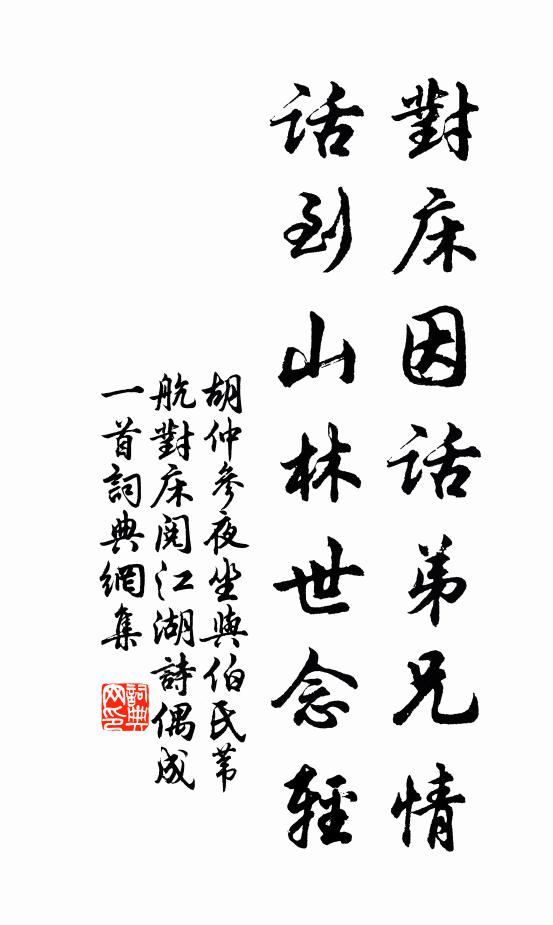 對床因話弟兄情
話到山林世念輕
胡仲參夜坐與伯氏葦
航對床閱江湖詩偶成
一首詞典網集
詞典网印